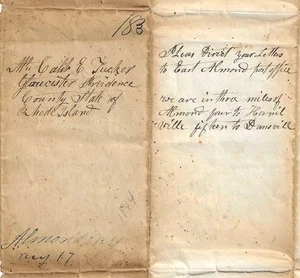 183
Mr Calib E. Tucker
Glaucister Providence
County State of
Rhode Island
Almond
Aug 17
Pleas Direct your Letters
to East Almond post office
we are in three miles of
Almond four to Hornil
ville fifteen to Dansvill